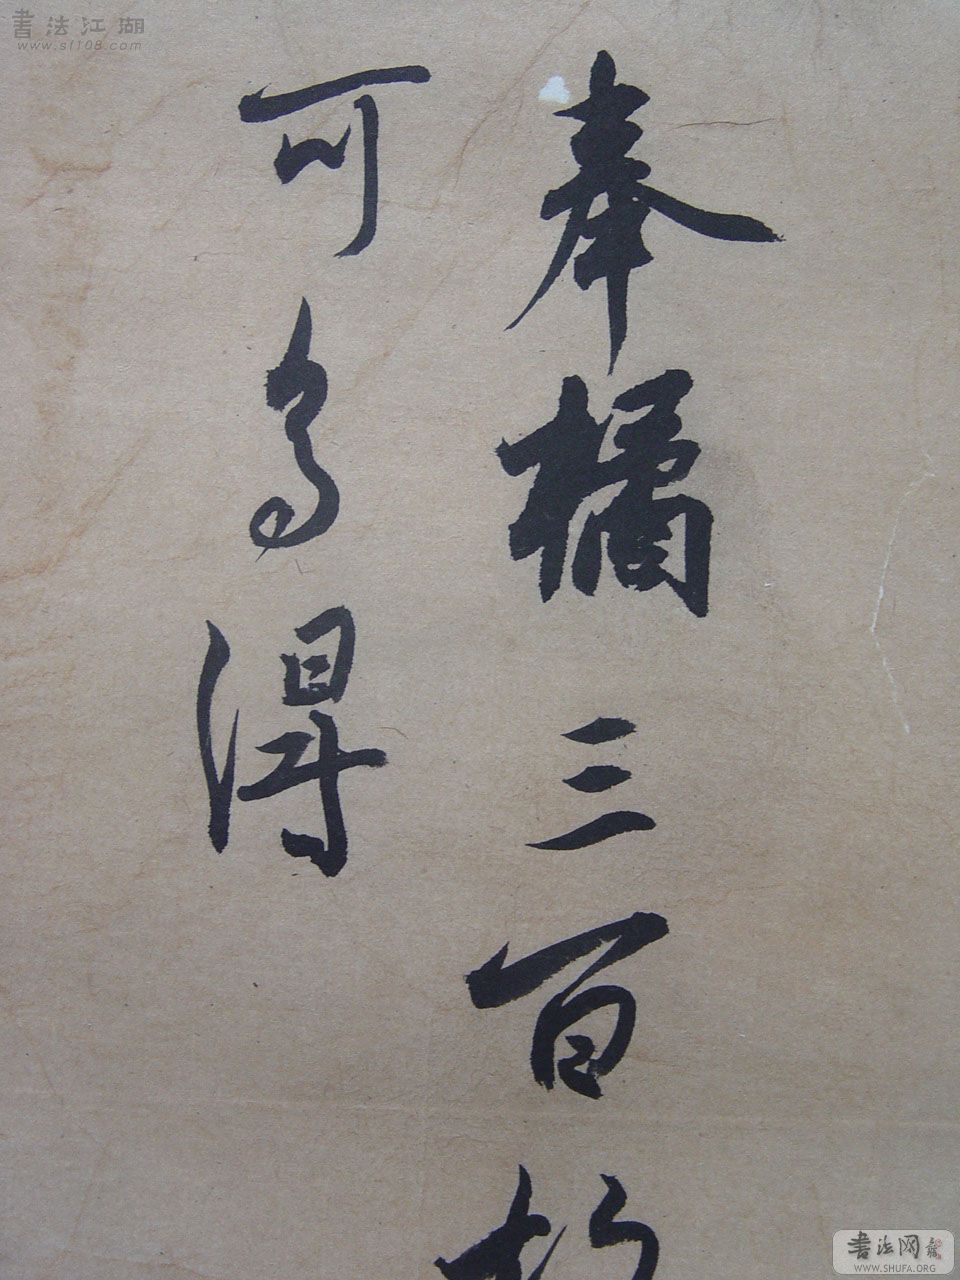 書法江湖
www.sf108.com
奉橘三百
可多得
書法网
WWW.SHUFA.ORG